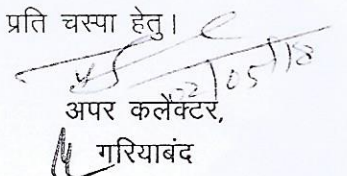 प्रति चस्पा हेतु।
22/05/18
अपर कलैक्टर,
गरियाबंद